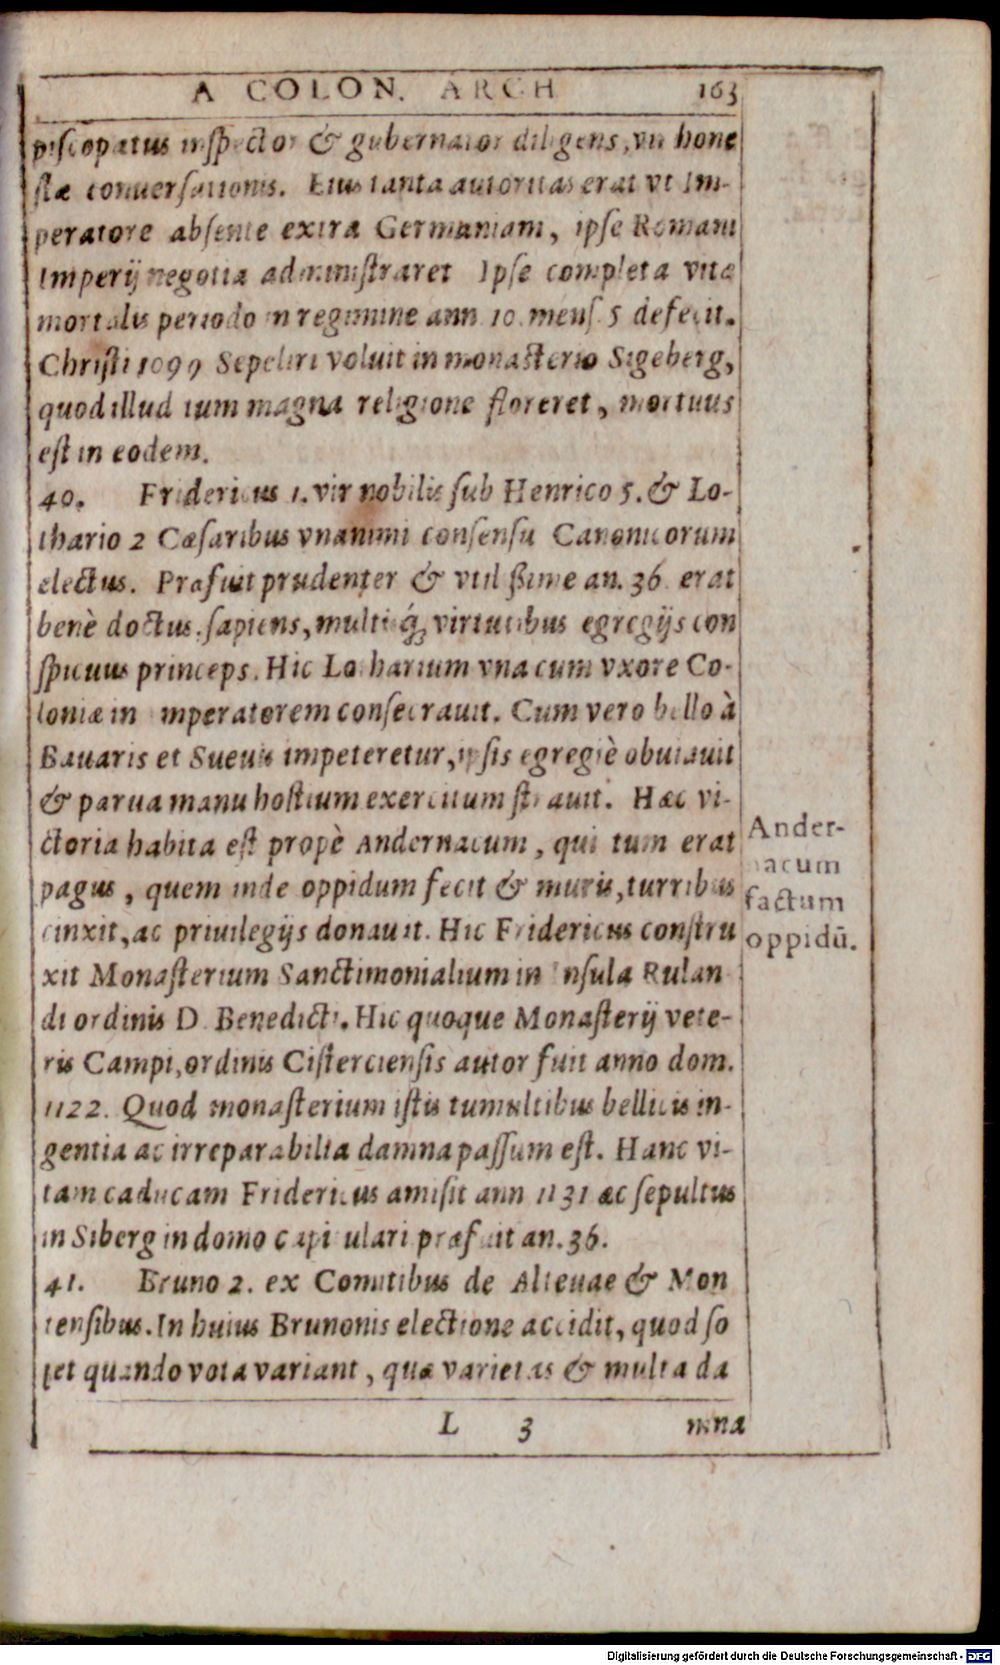 A COLON. ARCH 163
piscopatus inspector & gubernator diligens, vir hone
stæ conuersationis. Eius tanta autoritas erat vt Im-
peratore absente extra Germaniam, ipse Romani
Imperij negotia administraret Ipse completa vitæ
mortalis periodo in regimine ann. 10. mens. 5 defecit.
Christi 1099 Sepeliri voluit in monasterio Sigeberg,
quod illud tum magna religione floreret, mortuus
est in eodem.
40. Fridericus 1. vir nobilis sub Henrico 5. & Lo-
thario 2 Cæsaribus vnanimi consensu Canonicorum
electus. Præfuit prudenter & vtilißime an. 36. erat
benè doctus, sapiens, multisq́; virtutibus egregijs con
spicuus princeps. Hic Lotharium vna cum vxore Co-
loniæ in imperatorem consecrauit. Cum vero bello à
Bauaris et Sueuis impeteretur, ipsis egregiè obuiauit
& parua manu hostium exercitum strauit. Hæc vi-
ctoria habita est propè Andernacum, qui tum erat
pagus, quem inde oppidum fecit & muris, turribus
cinxit, ac priuilegijs donauit. Hic Fridericus constru
xit Monasterium Sanctimonialium in Insula Rulan
di ordinis D. Benedicti. Hic quoque Monasterij vete-
ris Campi, ordinis Cisterciensis autor fuit anno dom.
1122. Quod monasterium istis tumultibus bellicis in-
gentia ac irreparabilia damna passum est. Hanc vi-
tam caducam Fridericus amisit ann 1131 ac sepultus
in Siberg in domo capitulari præfuit an. 36.
41. Bruno 2. ex Comitibus de Alteuae & Mon
tensibus. In huius Brunonis electione accidit, quod so
let quando vota variant, quæ varietas & multa da
Ander-
nacum
factum
oppidũ.
L 3 mna
Digitalisierung gefördert durch die Deutsche Forschungsgemeinschaft - DFG